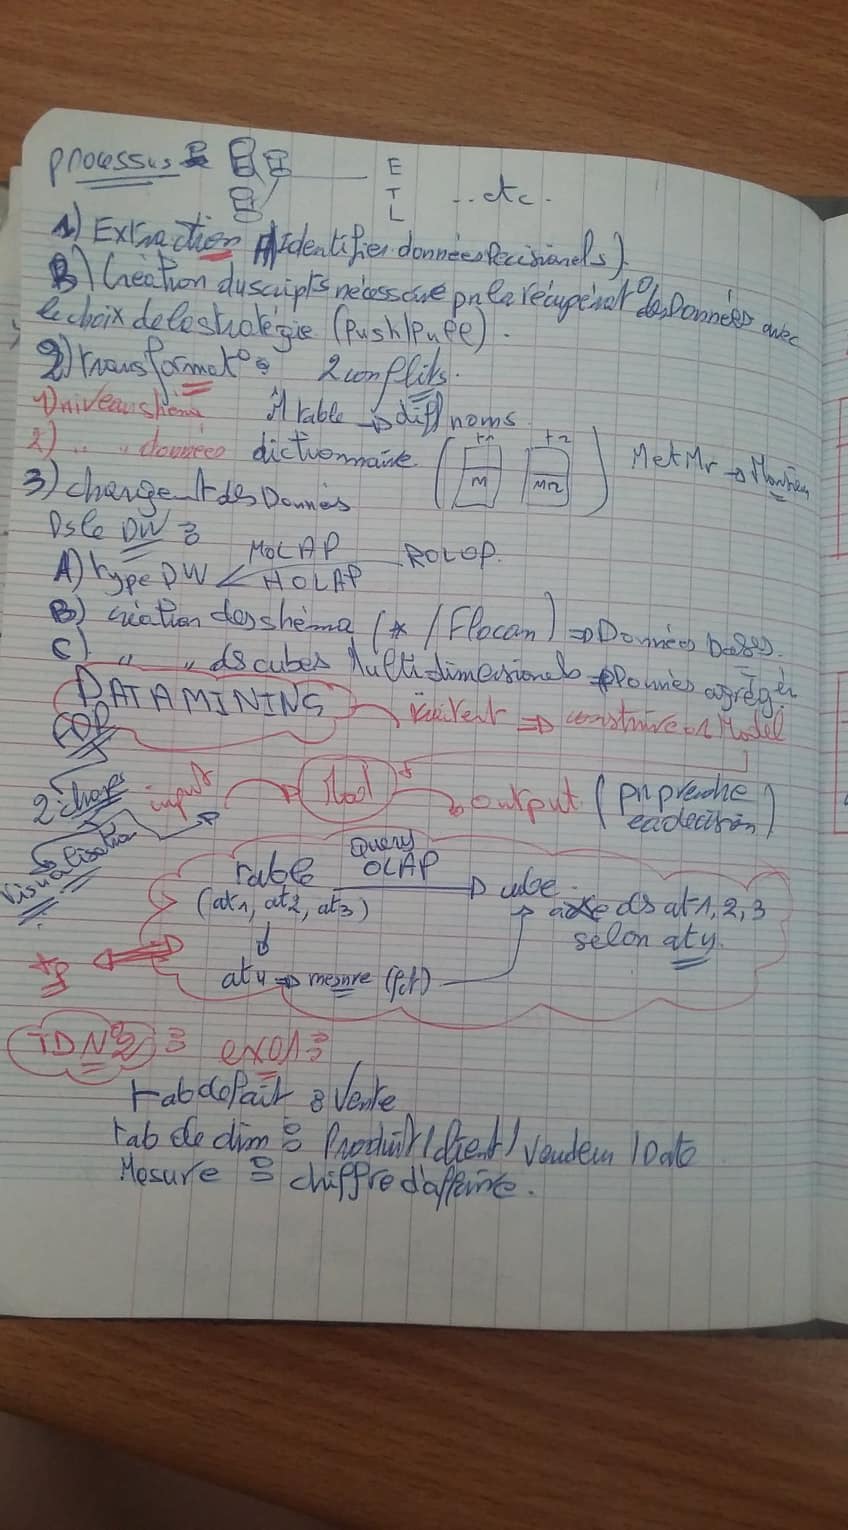 processus :
E
T
L
... etc.
1) Extraction A) identifier données Décisionnels).
B) Création du scripts nécessaire pr la récupérat° des Données avec
le choix de la stratégie (Push/Pull).
2) transformat° : 2 conflits.
1) niveau shéma 1 table → diff noms
2) .. .. données dictionnaire
M
Met Mr → Monsieur
3) chargement des Données
Ds le DW :
A) type DW MOLAP ROLAP.
HOLAP
B) création des shéma (* / Flocon) ⇒ Données bases.
C) " " ds cubes Multidimensionels ⇒ Données agréger
DATAMINING
⇒ construire un Model
2 choses input output (pr prendre
la decision)
visualisation
table Query OLAP → cube.
(at1, at2, at3) axe ds at1, 2, 3
selon at4.
at4 ⇒ mesure (fct)
TD N°2 : exo1 :
tab de fait : Vente
tab de dim : Produit / client / vendeur / Date
Mesure : chiffre d'affaire.